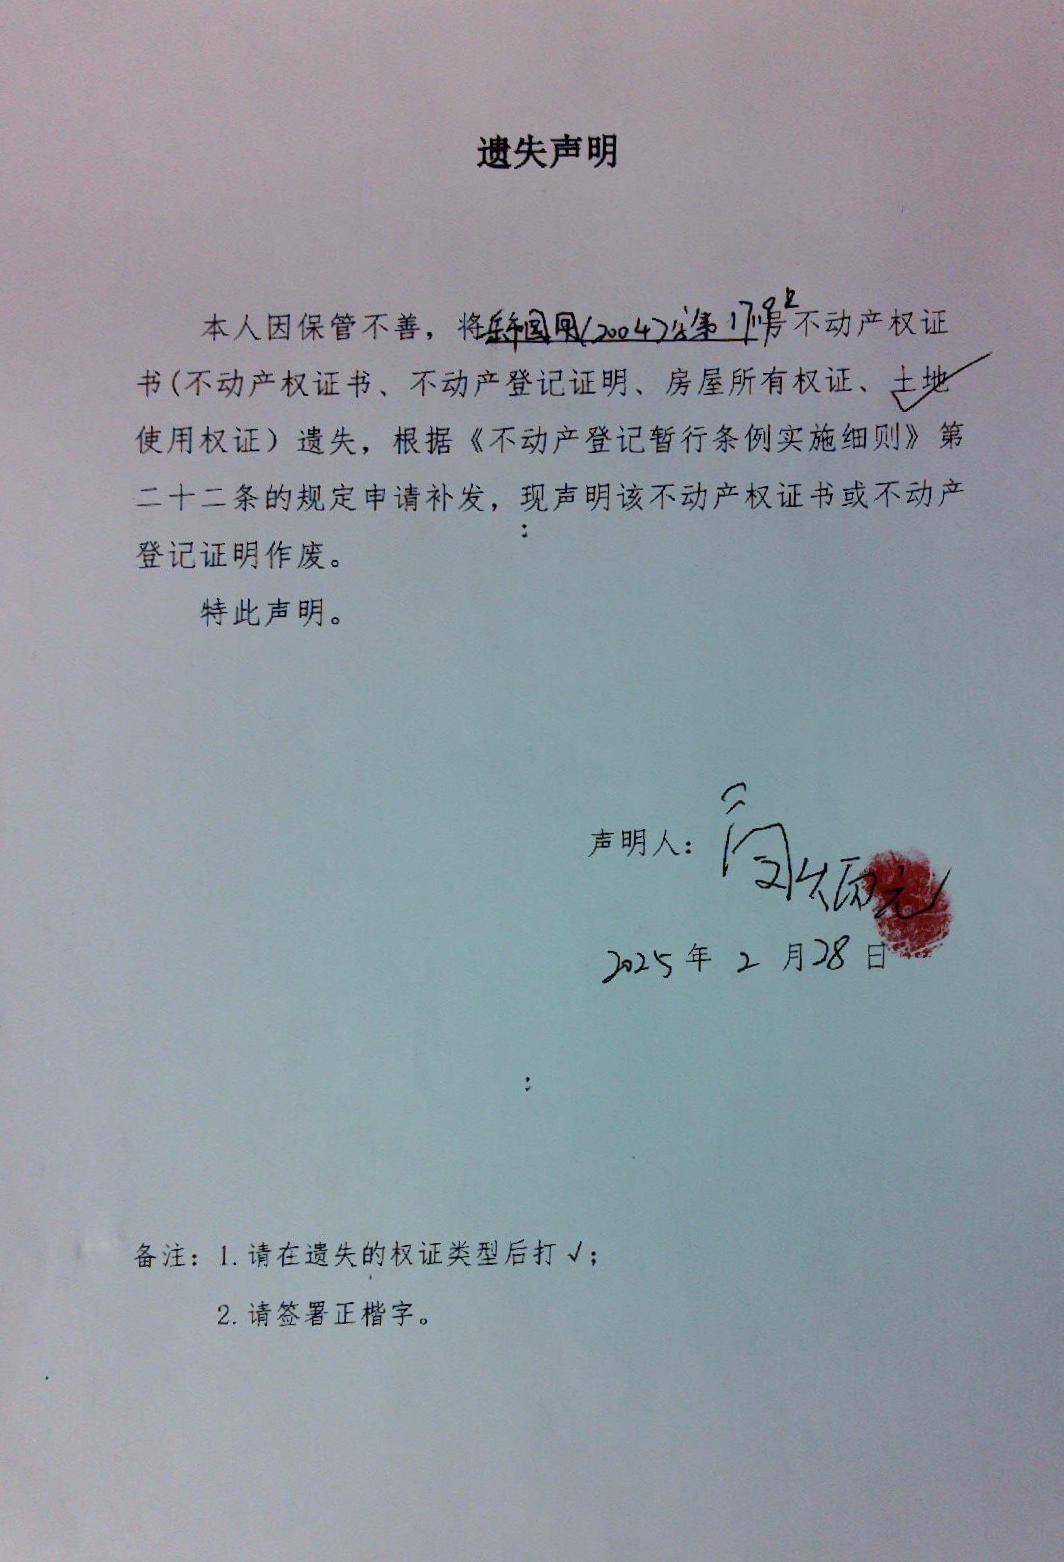 遗失声明
本人因保管不善，将 国用(2004) 第 号不动产权证
书(不动产权证书、不动产登记证明、房屋所有权证、土地
使用权证）遗失，根据《不动产登记暂行条例实施细则》第
二十二条的规定申请补发，现声明该不动产权证书或不动产
登记证明作废。
特此声明。
声明人：
2025 年 2 月 28 日
备注：1.请在遗失的权证类型后打 √；
2.请签署正楷字。